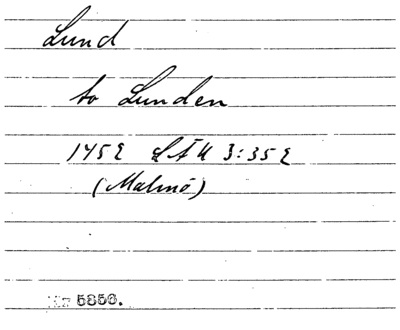 Lund
to Lunden
1452 LÄU 3:352
(Malmö)
5850.